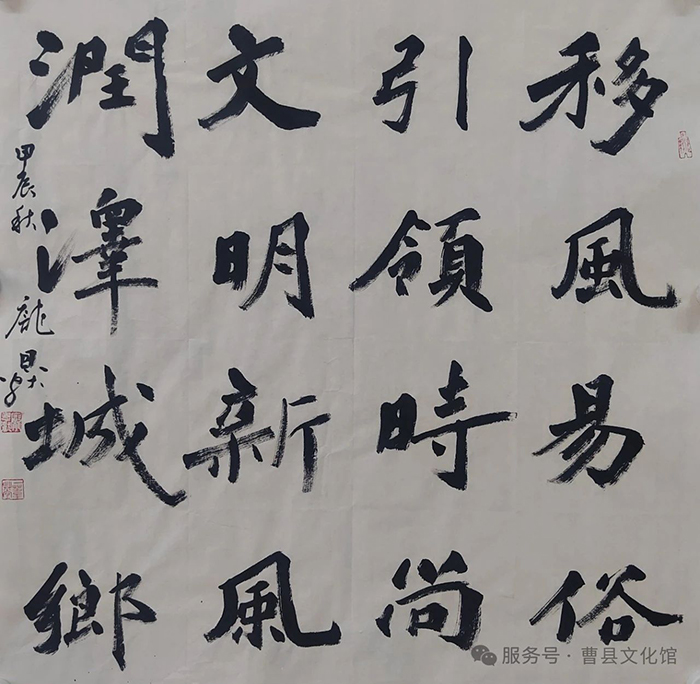 移風易俗
引領時尚
文明新風
潤澤城鄉
甲辰秋
龐
服务号·曹县文化馆